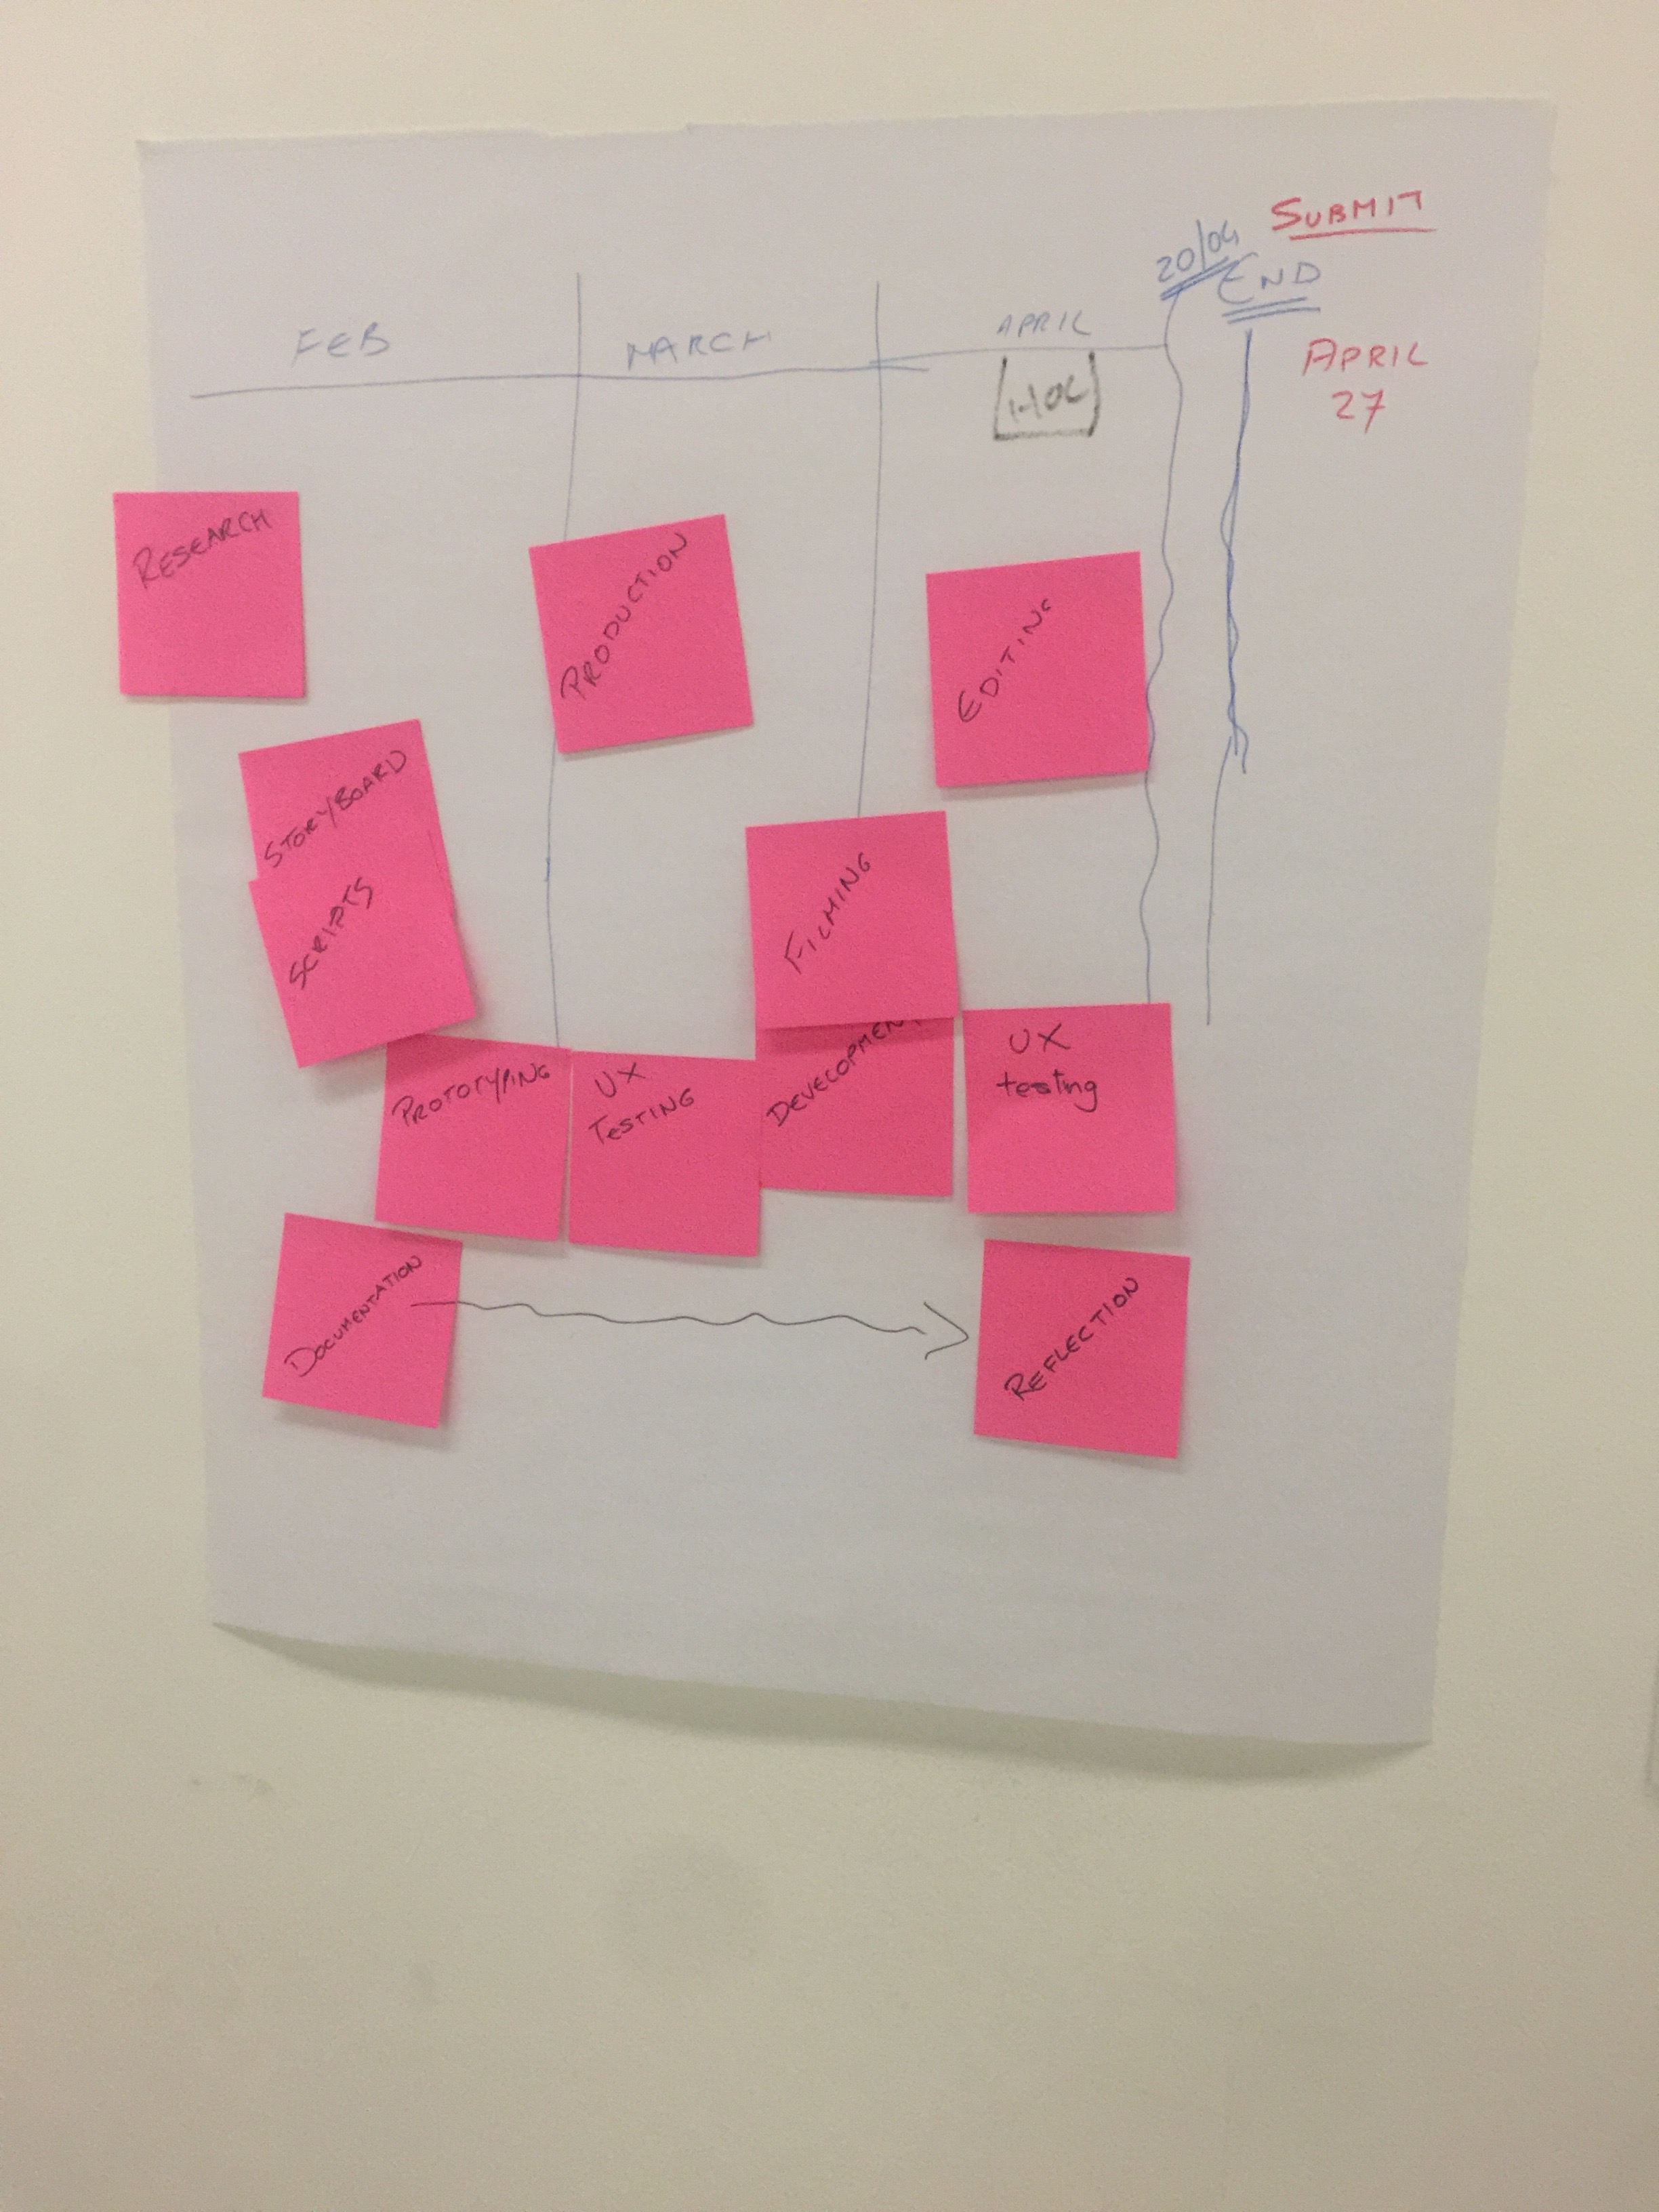 SUBMIT
20/04
END
FEB
MARCH
APRIL
APRIL
27
HOL
RESEARCH
PRODUCTION
EDITING
STORYBOARD
SCRIPTS
FILMING
PROTOTYPING
UX
TESTING
DEVELOPMENT
UX
testing
DOCUMENTATION
REFLECTION